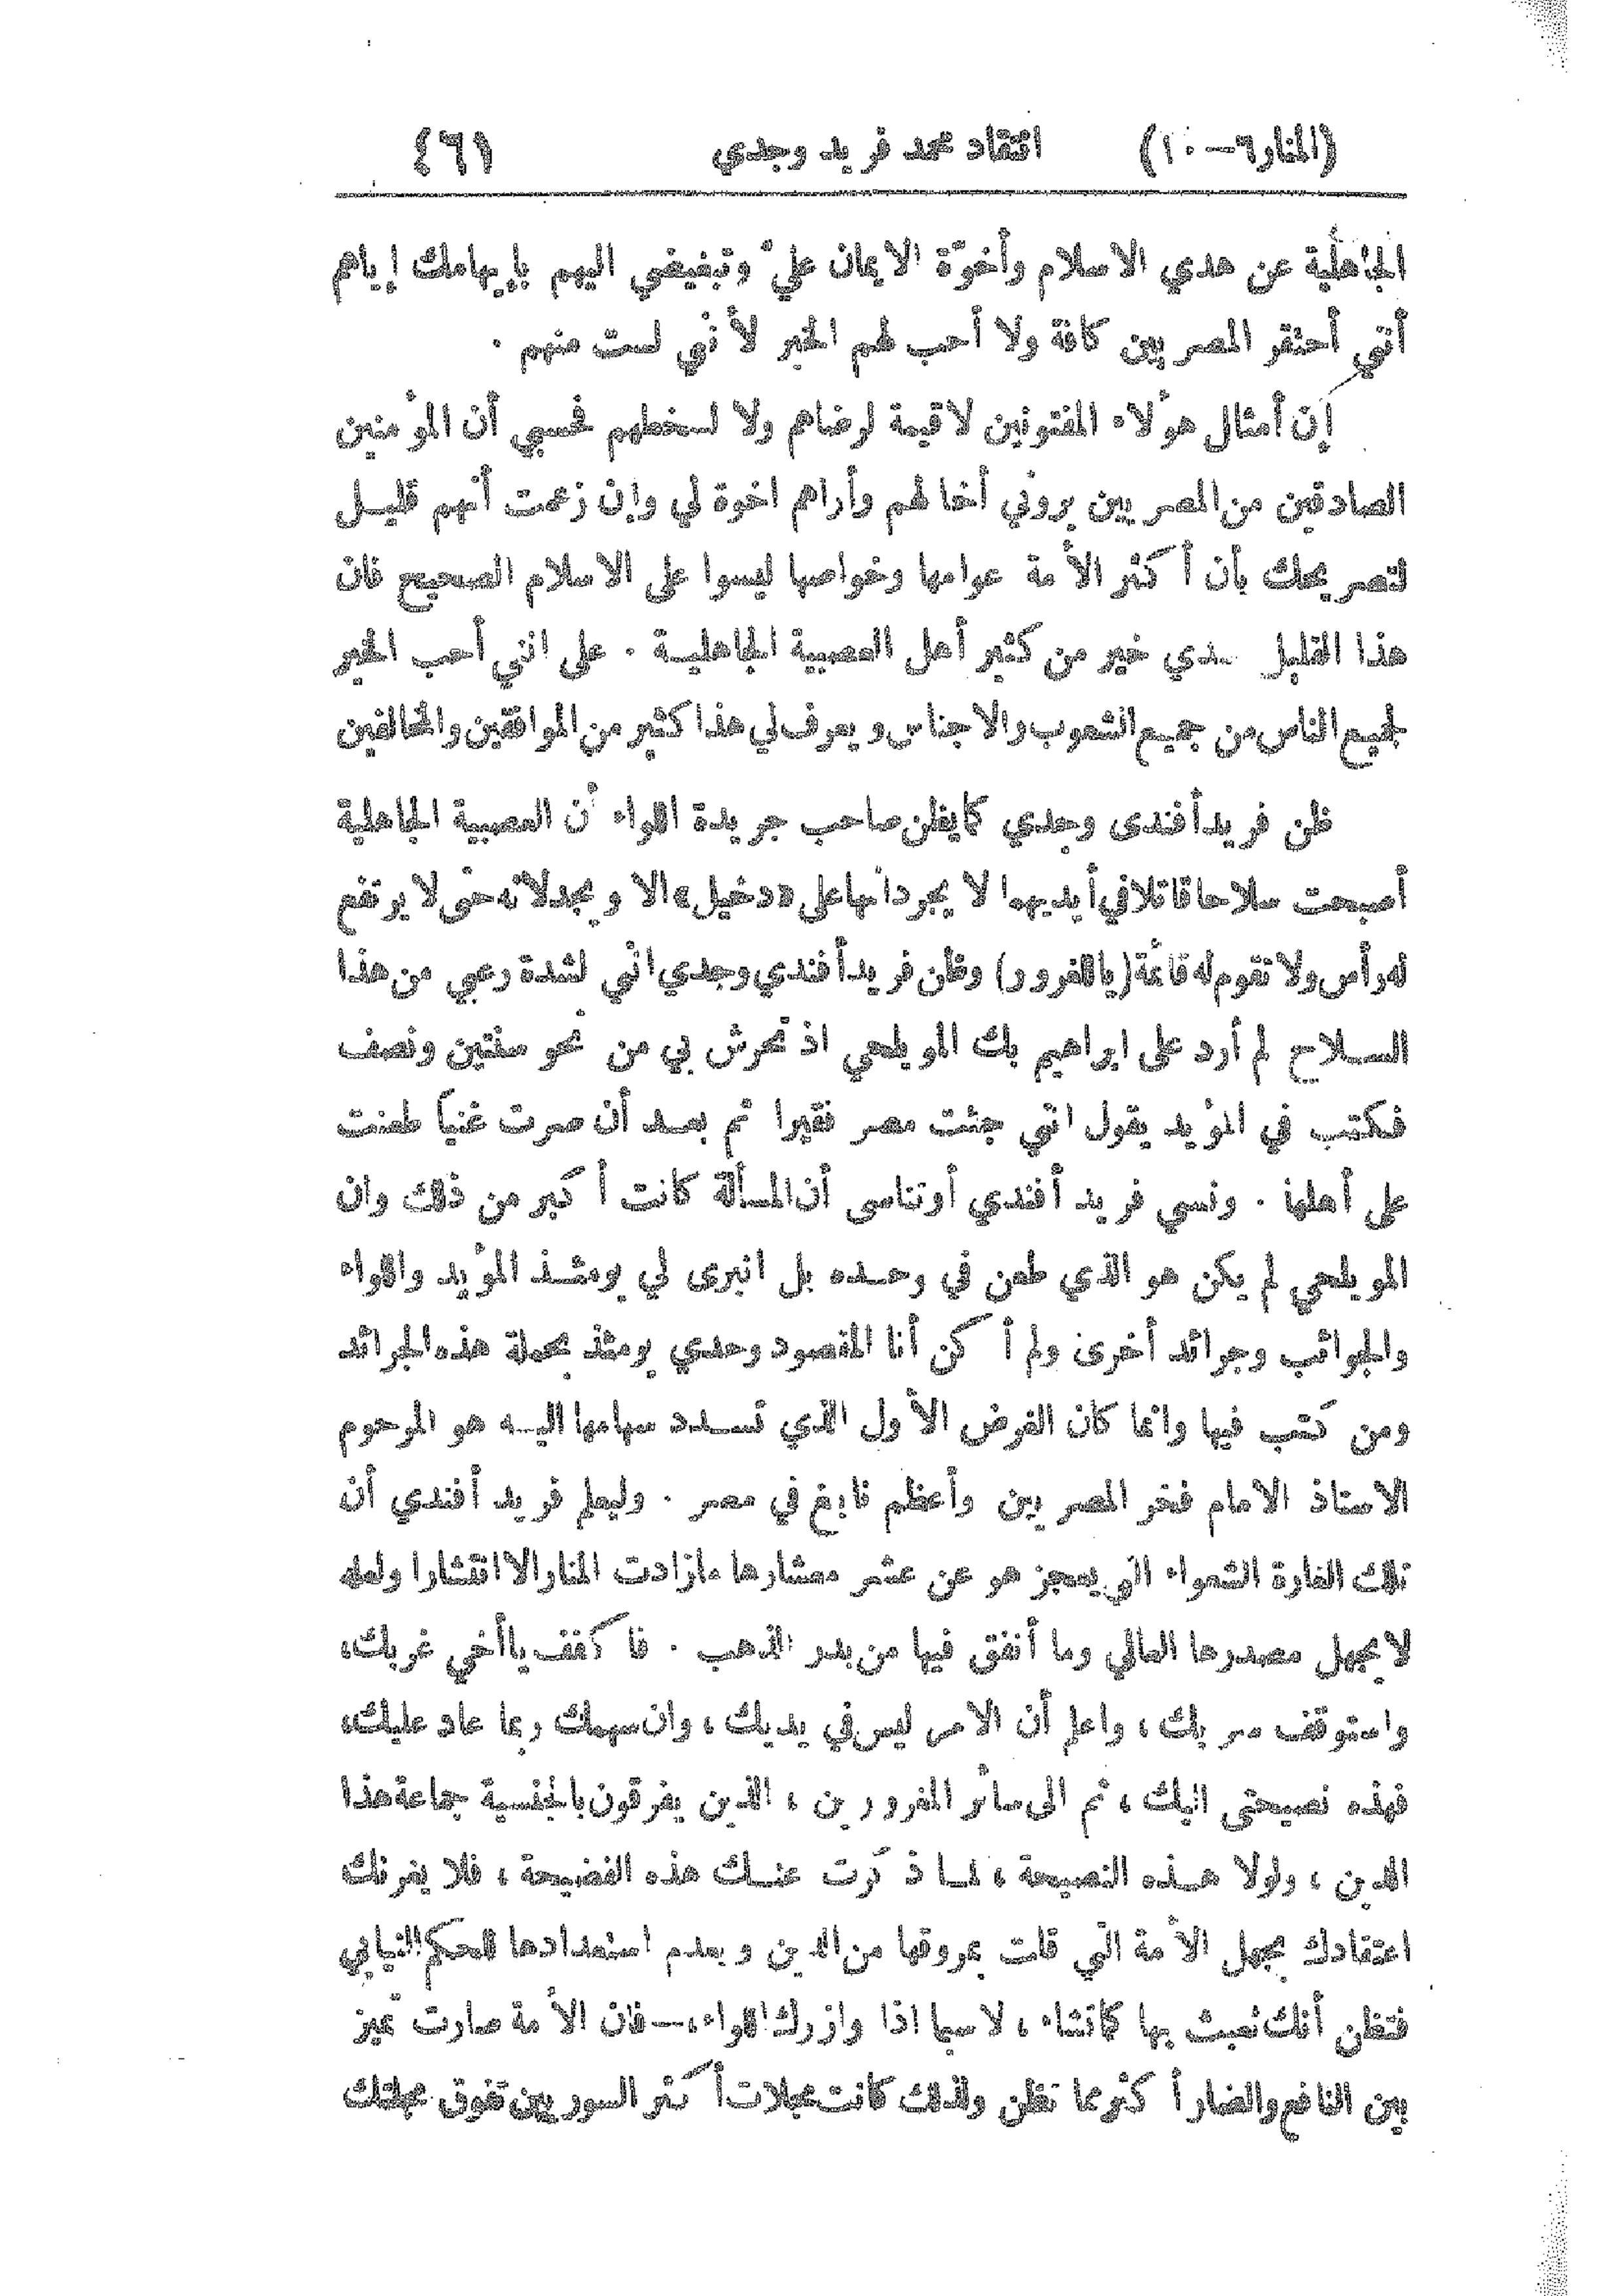 (المنار ٦ – ١٠) انتقاد محمد فريد وجدي ٤٦١
الجاهلية عن هدي الاسلام وأخوّة الايمان عليّ وتبغيضي اليهم بإيهامك إياهم
أنني أحتقر المصريين كافة ولا أحب لهم الخير لأنني لست منهم .
إن أمثال هؤلاء المفتونين لا قيمة لرضاهم ولا لسخطهم فحسبي أن المؤمنين
الصادقين من المصريين يروني أخا لهم وأراهم اخوة لي وإن زعمت أنهم قليل
لتصريحك بأن أكثر الأمة عوامها وخواصها ليسوا على الاسلام الصحيح فان
هذا القليل عندي خير من كثير أهل العصبية الجاهلية . على انني أحب الخير
لجميع الناس من جميع الشعوب والاجناس ويعرف لي هذا كثير من الموافقين والمخالفين
ظن فريد أفندى وجدي كما يظن صاحب جريدة اللواء أن العصبية الجاهلية
أصبحت سلاحا قاتلا في أيديهما لا يجردانها على «دخيل» الا ويجدلانه حتى لا يرتفع
له رأس ولا تقوم له قائمة (يا للغرور) وظن فريد أفندي وجدي انني لشدة رعبي من هذا
السلاح لم أرد على ابراهيم بك المويلحي اذ تحرش بي من نحو سنتين ونصف
فكتب في المؤيد يقول انني جئت مصر فقيرا ثم بعد أن صرت غنياً طعنت
على أهلها . ونسي فريد أفندي أو تناسى أن المسألة كانت أكبر من ذلك وان
المويلحي لم يكن هو الذي طعن في وحده بل انبرى لي يومئذ المؤيد واللواء
والجوائب وجرائد أخرى ولم أكن أنا المقصود وحدي يومئذ بحملة هذه الجرائد
ومن كتب فيها وانما كان الغرض الأول الذي تسدد سهامها اليه هو المرحوم
الاستاذ الامام فخر المصريين وأعظم نابغ في مصر . وليعلم فريد أفندي أن
تلك الغارة الشعواء التي يعجز هو عن عشر معشارها ما زادت المنار الا انتشارا ولعله
لا يجهل مصدرها المالي وما أنفق فيها من بدر الذهب . فاكفف يا أخي غربك،
واستوقف سربك ، واعلم أن الامر ليس في يديك ، وان سهمك ربما عاد عليك،
فهذه نصيحتى اليك ، ثم الى سائر المغرورين ، الذين يفرقون بالجنسية جماعة هذا
الدين ، ولولا هذه النصيحة ، لما ذكرت عنك هذه الفضيحة ، فلا يغرنك
اعتقادك بجهل الأمة التي قلت بمروقها من الدين وبعدم استعدادها للحكم النيابي
فتظن أنك تعبث بها كما تشاء ، لا سيما اذا وازرك اللواء، – فان الأمة صارت تميز
بين النافع والضار أكثر مما تظن ولذلك كانت مجلات أكثر السوريين تفوق مجلتك